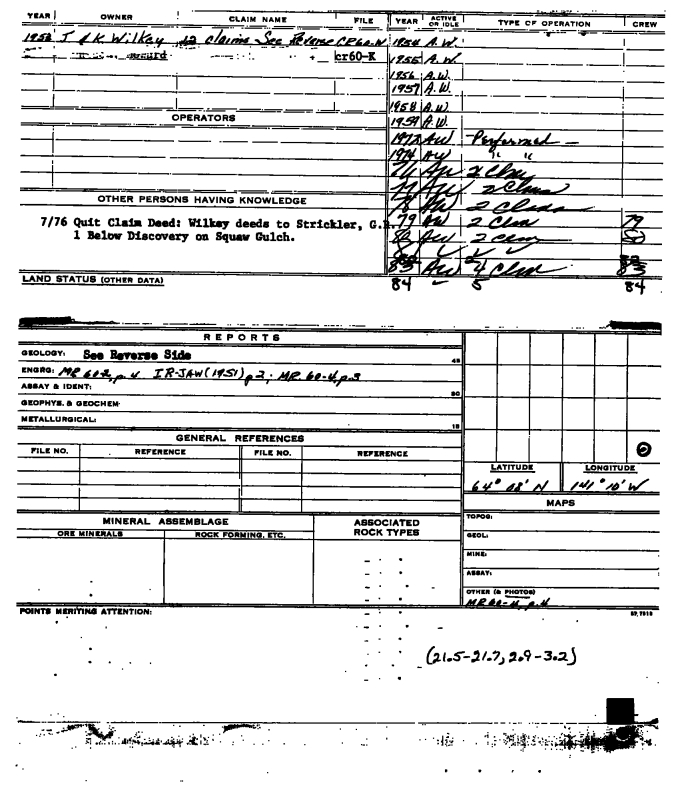 YEAR OWNER CLAIM NAME FILE YEAR ACTIVE OR IDLE TYPE OF OPERATION CREW
1952 J & K Wilkey 12 claims See Reverse CR60-N 1954 A.W.
cr60-K 1955 A.W.
1956 A.W.
1957 A.W.
1958 A.W.
OPERATORS 1959 A.W.
1972 AW Performed —
1974 AW " "
76 AW 2 Clms
77 AW 2 Clms
OTHER PERSONS HAVING KNOWLEDGE 78 AW 2 Clms
7/76 Quit Claim Deed: Wilkey deeds to Strickler, G. 79 AW 2 Clms 79
1 Below Discovery on Squaw Gulch. 80 AW 2 Clms 80
83 AW 4 Clms 83
LAND STATUS (OTHER DATA) 84 5 84
REPORTS
GEOLOGY: See Reverse Side 45
ENGRG: MR 60-2, p. 4 IR-JAW (1951) p 2; MR. 60-4, p.3
ASSAY & IDENT: 30
GEOPHYS. & GEOCHEM.
METALLURGICAL: 15
GENERAL REFERENCES
FILE NO. REFERENCE FILE NO. REFERENCE
LATITUDE LONGITUDE
64° 08' N 141° 10' W
MAPS
MINERAL ASSEMBLAGE ASSOCIATED ROCK TYPES TOPOG:
ORE MINERALS ROCK FORMING, ETC. GEOL:
MINE:
ASSAY:
OTHER (& PHOTOS)
MR 60-4, p.4
POINTS MERITING ATTENTION:
(21.5-21.7, 2.9-3.2)